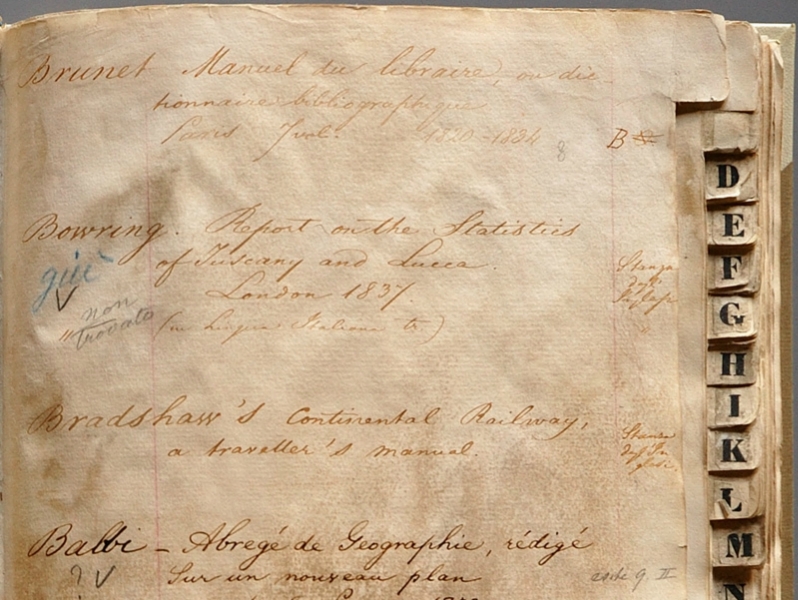 Brunet Manuel du libraire, ou dic-
tionnaire bibliographique
Paris 1820-1834 8 B
Bowring. Report on the Statistics
of Tuscany and Lucca.
London 1837.
giù
V
non
trovato
" (in lingua Italiana
Stanza
Bradshaw's Continental Railway,
a traveller's manual.
Stanza
Balbi - Abregé de Geographie, rédigé
? V Sur un nouveau plan
D
E
F
G
H
I
K
L
M
N